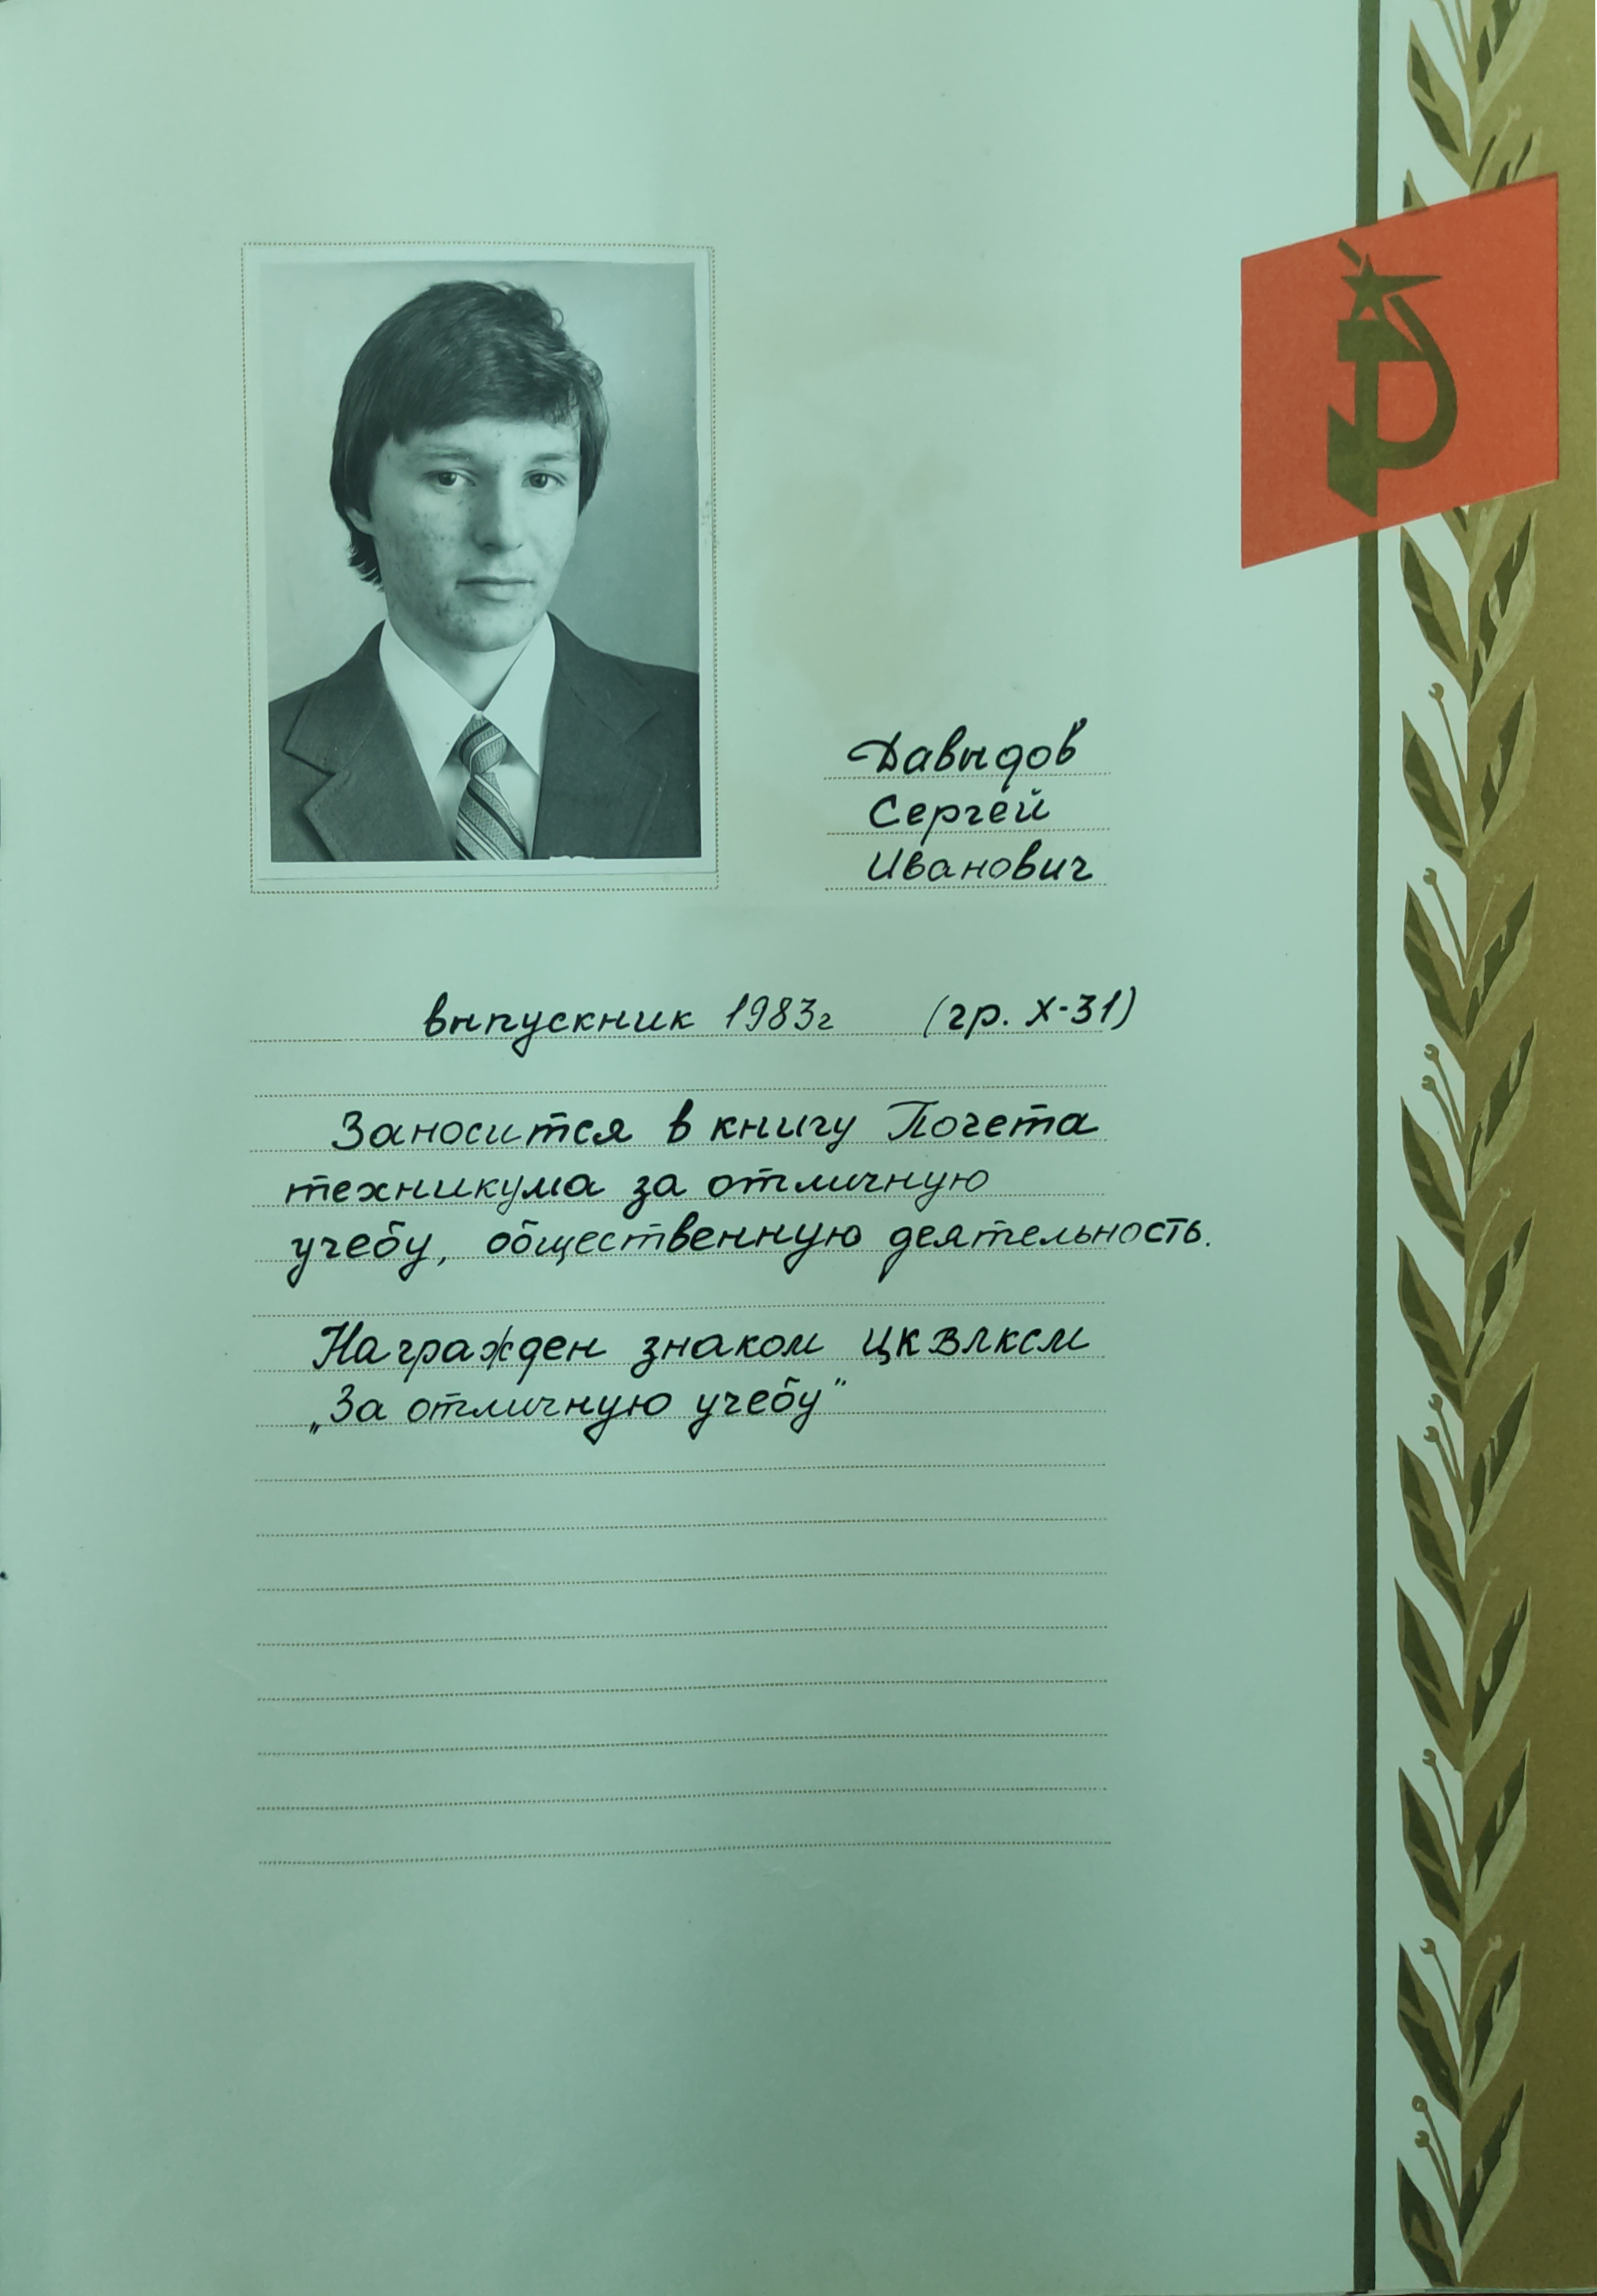 Давыдов
Сергей
Иванович
выпускник 1983г (гр. Х-31)
Заносится в книгу Почета
техникума за отличную
учебу, общественную деятельность.
Награжден знаком ЦК ВЛКСМ
„За отличную учебу"